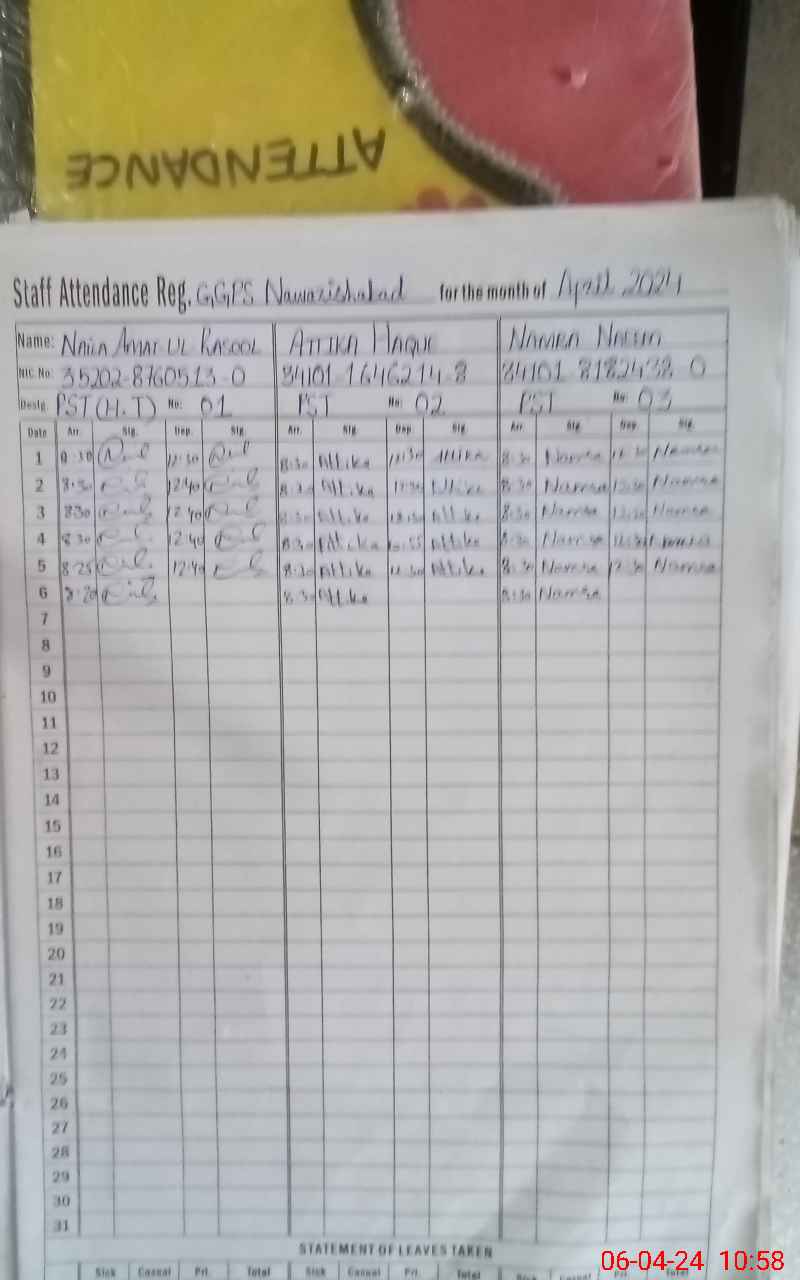 ATTENDANCE
Staff Attendance Reg. G.G.P.S Nawazishabad for the month of April 2024
Name: NAILA AMAT UL RASOOL ATTIKA HAQUE NAMRA NAEEM
NIC No: 35202-8760513-0 34101-1646214-8 34101-8182438-0
Desig. PST (H.T) No: 01 PST No: 02 PST No: 03
Date Arr. Sig. Dep. Sig. Arr. Sig. Dep. Sig. Arr. Sig. Dep. Sig.
1 8:30 Attika Attika 8:30 Namra Namra
2 8:30 12:40 8:30 Attika Attika 8:30 Namra 12:30 Namra
3 830 12:40 8:30 Attika Attika 8:30 Namra 12:30 Namra
4 8:30 12:40 8:30 Attika Attika 8:30 Namra
5 8:25 12:40 8:30 Attika 12:30 Attika 8:30 Namra 12:30 Namra
6 8:20 8:30 Attika 8:30 Namra
7
8
9
10
11
12
13
14
15
16
17
18
19
20
21
22
23
24
25
26
27
28
29
30
31
STATEMENT OF LEAVES TAKEN
Sick Casual Pri. Total Sick Casual Pri. Total Sick Casual Pri. Total
06-04-24 10:58